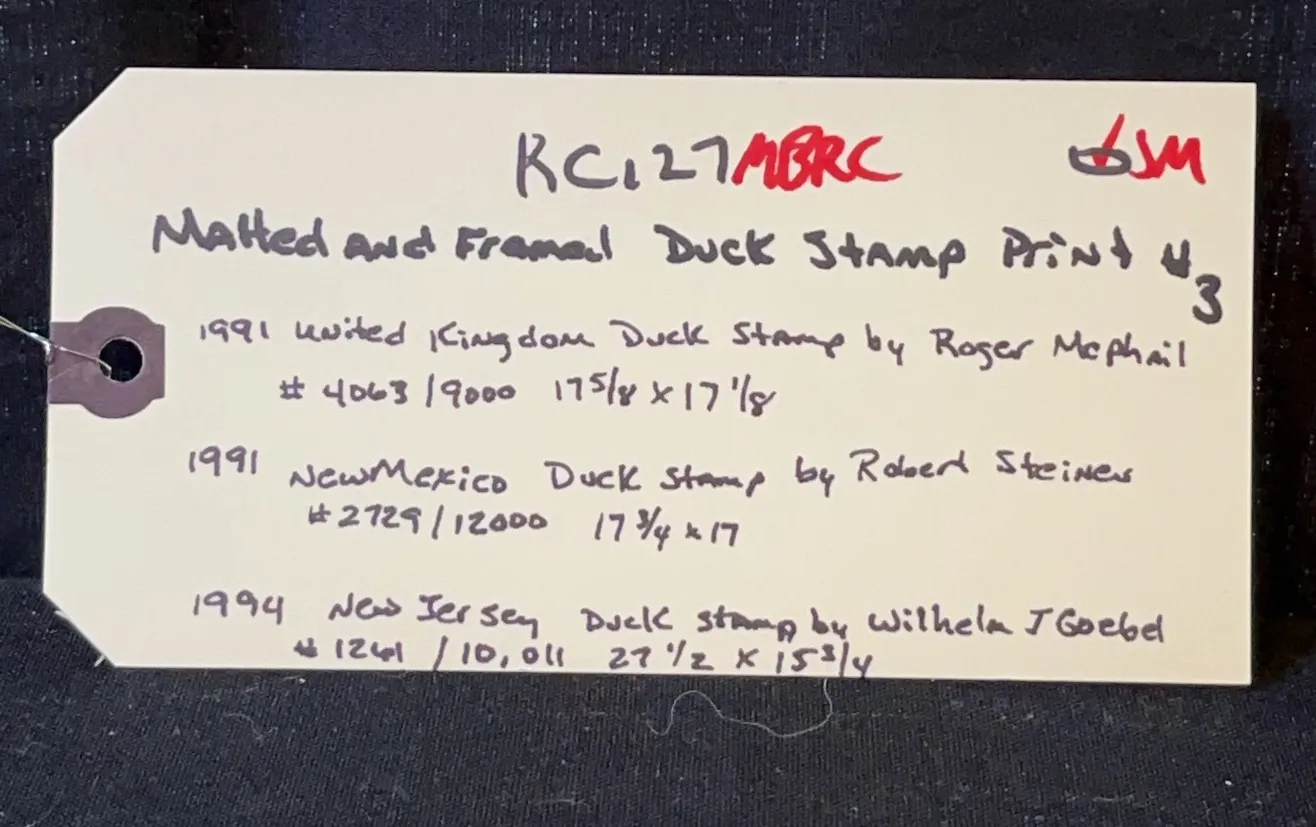 KC127 MBRC JM
Matted and Framed Duck Stamp Print
3
1991 United Kingdom Duck Stamp by Roger Mcphail
# 4063 / 9000 17 5/8 x 17 1/8
1991 New Mexico Duck Stamp by Robert Steiner
# 2729 / 12000 17 3/4 x 17
1994 New Jersey Duck Stamp by Wilhelm J Goebel
# 1261 / 10,011 27 1/2 x 15 3/4